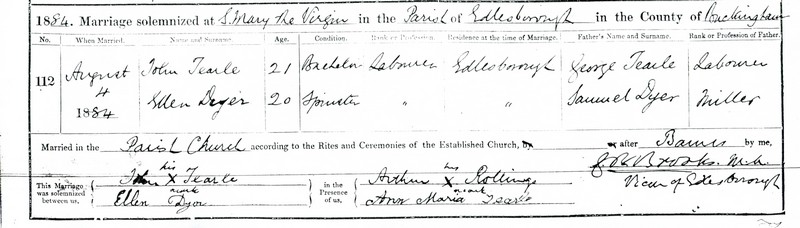 1884. Marriage solemnized at S. Mary the Virgin in the Parish of Edlesborough in the County of Buckingham
No. When Married. Name and Surname. Age. Condition. Rank or Profession. Residence at the time of Marriage. Father's Name and Surname. Rank or Profession of Father.
112 August 4 1884 John Tearle 21 Bachelor Labourer Edlesborough George Tearle Labourer
Ellen Dyer 20 Spinster " " Samuel Dyer Miller
Married in the Parish Church according to the Rites and Ceremonies of the Established Church, by or after Banns by me,
This Marriage was solemnized between us, John his X mark Tearle
Ellen Dyer
in the Presence of us, Arthur his X mark Rollings
Ann Maria Tearle
Brooks M.A.
Vicar of Edlesborough